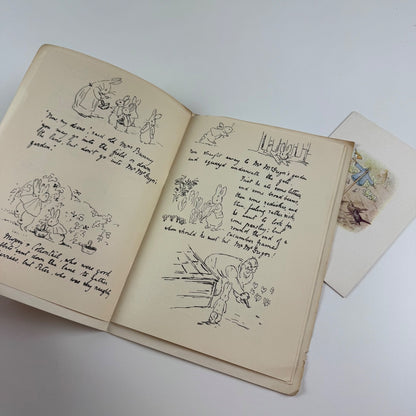 "Now my dears", said old Mrs Bunny
"you may go into the field or down
the lane, but don't go into Mr McGregor's
garden."
Mopsy & Cottontail who were good
little
went down the lane to gather
but Peter, who was very naughty
ran straight away to Mr McGregor's garden
and squeezed underneath the gate.
First he ate some lettuce,
and some broad beans,
then some radishes, and
then, feeling rather sick,
he went to look for
some parsley; but
round the end of a
cucumber frame
whom should he meet but Mr McGregor!